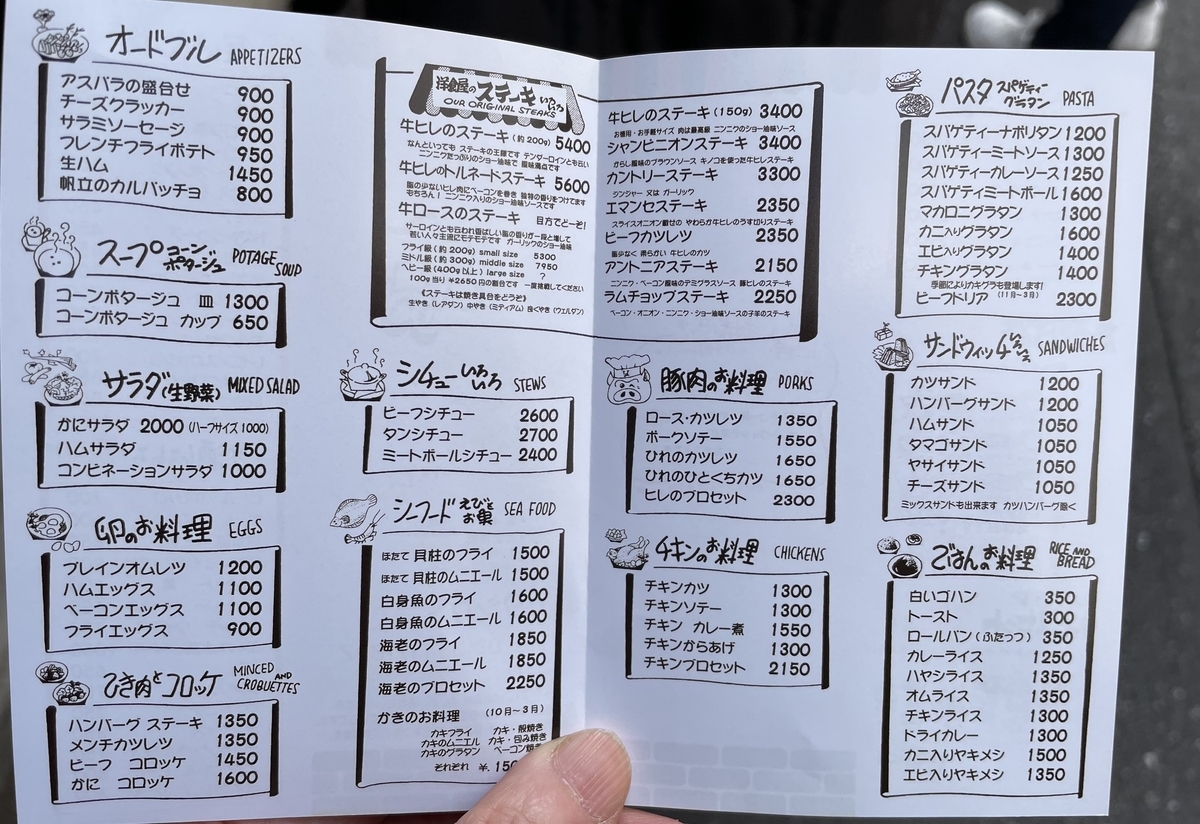 オードブル APPETIZERS
アスパラの盛合せ 900
チーズクラッカー 900
サラミソーセージ 900
フレンチフライポテト 950
生ハム 1450
帆立のカルパッチョ 800
スープ コーンポタージュ POTAGE SOUP
コーンポタージュ 皿 1300
コーンポタージュ カップ 650
サラダ(生野菜) MIXED SALAD
かにサラダ 2000 (ハーフサイズ1000)
ハムサラダ 1150
コンビネーションサラダ 1000
卵のお料理 EGGS
プレインオムレツ 1200
ハムエッグス 1100
ベーコンエッグス 1100
フライエッグス 900
ひき肉とコロッケ MINCED AND CROBUETTES
ハンバーグ ステーキ 1350
メンチカツレツ 1350
ビーフ コロッケ 1450
かに コロッケ 1600
洋食屋のステーキいろいろ
OUR ORIGINAL STEAKS
牛ヒレのステーキ (約200g) 5400
なんといっても ステーキの王様です テンダーロインとも云い
ニンニクたっぷりのショー油味で 風味満点です
牛ヒレのトルネードステーキ 5600
脂の少ないヒレ肉にベーコンを巻き 独特の香りをつけてます
もちろん! ニンニク入りのショー油味ソースです
牛ロースのステーキ 目方でどーぞ!
サーロインとも云われ香ばしい脂の香りが一段と増して
若い人々主流にモテモテです ガーリックのショー油味
フライ級 (約200g) small size 5300
ミドル級 (約300g) middle size 7950
ヘビー級 (400g以上) large size ?
100g当り ¥2650円の割合です 一度挑戦してください
《ステーキは焼き具合をどうぞ》
生やき (レアダン) 中やき (ミディアム) 良くやき (ウェルダン)
牛ヒレのステーキ (150g) 3400
お徳用・お手軽サイズ 肉は最高級 ニンニクのショー油味ソース
シャンピニオンステーキ 3400
からし風味のブラウンソース キノコを使った牛ヒレステーキ
カントリーステーキ 3300
ジンジャー 又は ガーリック
エマンセステーキ 2350
スライスオニオン載せの やわらか牛ヒレのうす切りステーキ
ビーフカツレツ 2350
脂少なく 柔らかい 牛ヒレのカツ
アントニアステーキ 2150
ニンニク・ベーコン風味のデミグラスソース 豚ヒレのステーキ
ラムチョップステーキ 2250
ベーコン・オニオン・ニンニク・ショー油味ソースの子羊のステーキ
シチューいろいろ STEWS
ビーフシチュー 2600
タンシチュー 2700
ミートボールシチュー 2400
シーフード えびとお魚 SEA FOOD
ほたて 貝柱のフライ 1500
ほたて 貝柱のムニエール 1500
白身魚のフライ 1600
白身魚のムニエール 1600
海老のフライ 1850
海老のムニエール 1850
海老のプロセット 2250
かきのお料理 (10月〜3月)
カキフライ カキ・殻焼き
カキのムニエル カキ・包み焼き
カキのグラタン ベーコン焼き
それぞれ ¥.150
豚肉のお料理 PORKS
ロース・カツレツ 1350
ポークソテー 1550
ひれのカツレツ 1650
ひれのひとくちカツ 1650
ヒレのプロセット 2300
チキンのお料理 CHICKENS
チキンカツ 1300
チキンソテー 1300
チキン カレー煮 1550
チキンからあげ 1300
チキンプロセット 2150
パスタ スパゲティーグラタン PASTA
スパゲティーナポリタン 1200
スパゲティーミートソース 1300
スパゲティーカレーソース 1250
スパゲティミートボール 1600
マカロニグラタン 1300
カニ入りグラタン 1600
エビ入りグラタン 1400
チキングラタン 1400
季節によりカキグラも登場します!
ビーフドリア (11月〜3月) 2300
サンドウィッチいろいろ SANDWICHES
カツサンド 1200
ハンバーグサンド 1200
ハムサンド 1050
タマゴサンド 1050
ヤサイサンド 1050
チーズサンド 1050
ミックスサンドも出来ます カツハンバーグ除く
ごはんのお料理 RICE AND BREAD
白いゴハン 350
トースト 300
ロールパン (ふたっつ) 350
カレーライス 1250
ハヤシライス 1350
オムライス 1350
チキンライス 1300
ドライカレー 1300
カニ入りヤキメシ 1500
エビ入りヤキメシ 1350